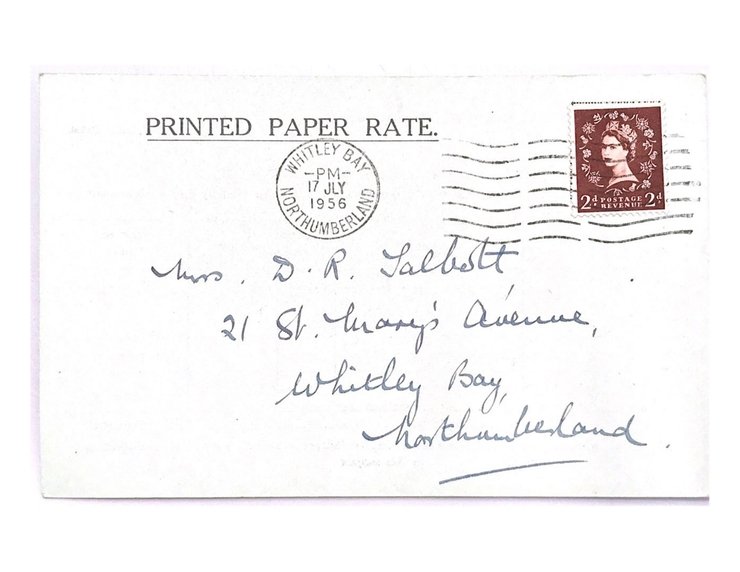 PRINTED PAPER RATE.
WHITLEY BAY
-PM-
17 JLY
1956
NORTHUMBERLAND
2d POSTAGE REVENUE 2d
Mrs. D. R. Talbott
21 St. Mary's Avenue,
Whitley Bay,
Northumberland.